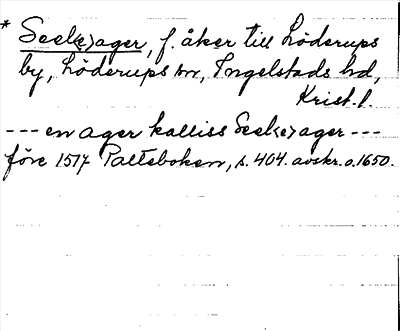 * Seel(e)ager, f. åker till Löderups
by, Löderups sn, Ingelstads hd,
Krist. l.
--- en ager kalliss Seel(e)ager ---
före 1517 Palteboken, s. 404. avskr. o. 1650.